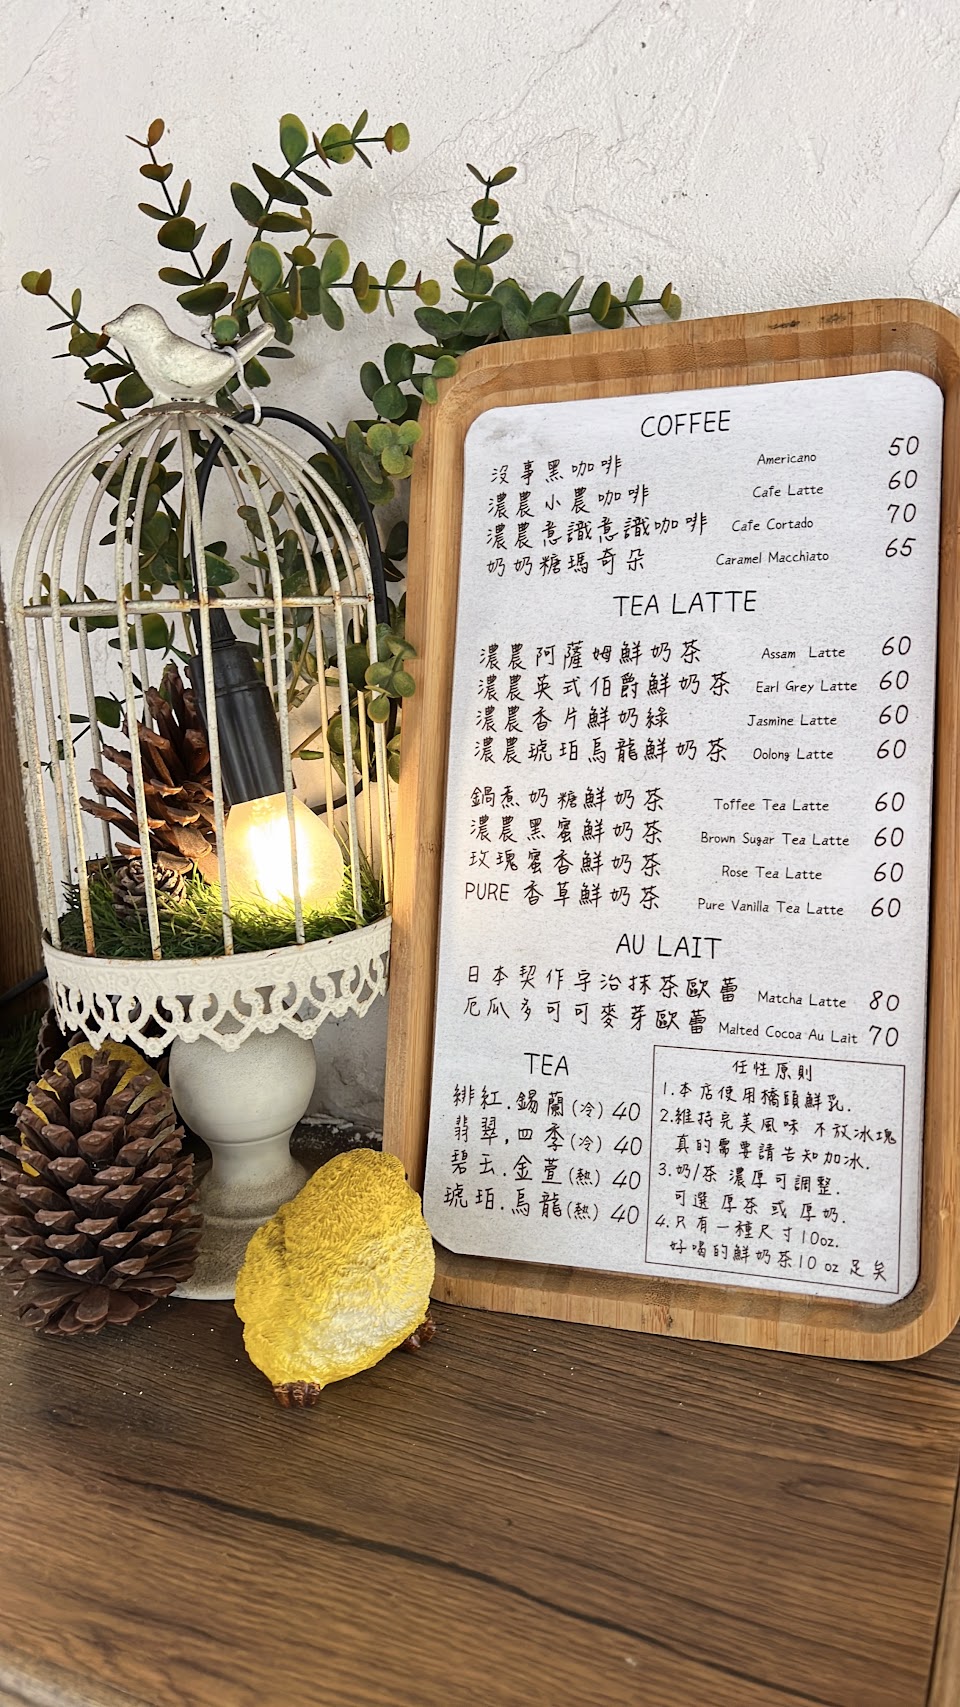 COFFEE
沒事黑咖啡 Americano 50
濃農小農咖啡 Cafe Latte 60
濃農意識意識咖啡 Cafe Cortado 70
奶奶糖瑪奇朵 Caramel Macchiato 65
TEA LATTE
濃農阿薩姆鮮奶茶 Assam Latte 60
濃農英式伯爵鮮奶茶 Earl Grey Latte 60
濃農香片鮮奶綠 Jasmine Latte 60
濃農琥珀烏龍鮮奶茶 Oolong Latte 60
鍋煮奶糖鮮奶茶 Toffee Tea Latte 60
濃農黑蜜鮮奶茶 Brown Sugar Tea Latte 60
玫瑰蜜香鮮奶茶 Rose Tea Latte 60
PURE 香草鮮奶茶 Pure Vanilla Tea Latte 60
AU LAIT
日本契作宇治抹茶歐蕾 Matcha Latte 80
厄瓜多可可麥芽歐蕾 Malted Cocoa Au Lait 70
TEA
緋紅.錫蘭(冷) 40
翡翠.四季(冷) 40
碧玉.金萱(熱) 40
琥珀.烏龍(熱) 40
任性原則
1.本店使用橋頭鮮乳.
2.維持完美風味 不放冰塊
真的需要請告知加冰.
3.奶/茶 濃厚可調整.
可選 厚茶 或 厚奶.
4.只有一種尺寸10oz.
好喝的鮮奶茶10 oz 足矣